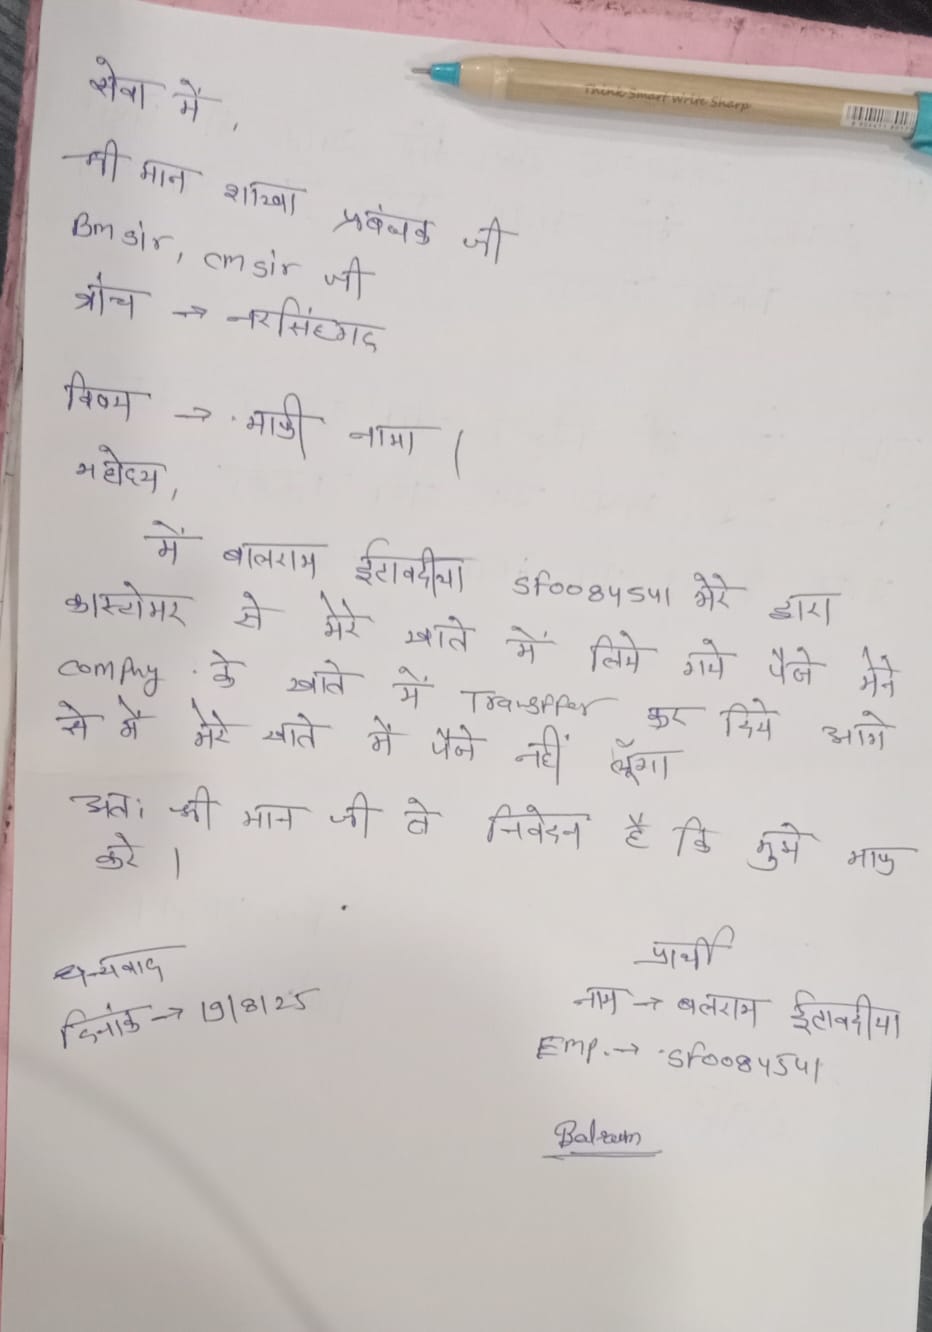 सेवा में,
Think Smart Write Sharp
श्री मान शाखा प्रबंधक जी
Bm sir, cm sir जी
ब्रांच → नरसिंहगढ़
विषय → माफी नामा |
महोदय,
में बालराम ईटावदीया SF0084541 मेरे द्वारा
कास्टोमर से मेरे खाते में लिये गये पैजे मेने
के खाते में Transffer कर दिये आगे
से मै मेरे खाते मै पैजे नहीं लूँगा
अतः श्री मान जी से निवेदन है कि मुझे माफ
करे |
धन्यवाद
दिनांक → 19/8/25
प्रार्थी
नाम → बलराम ईटावदीया
Emp. → SF0084541
Balram